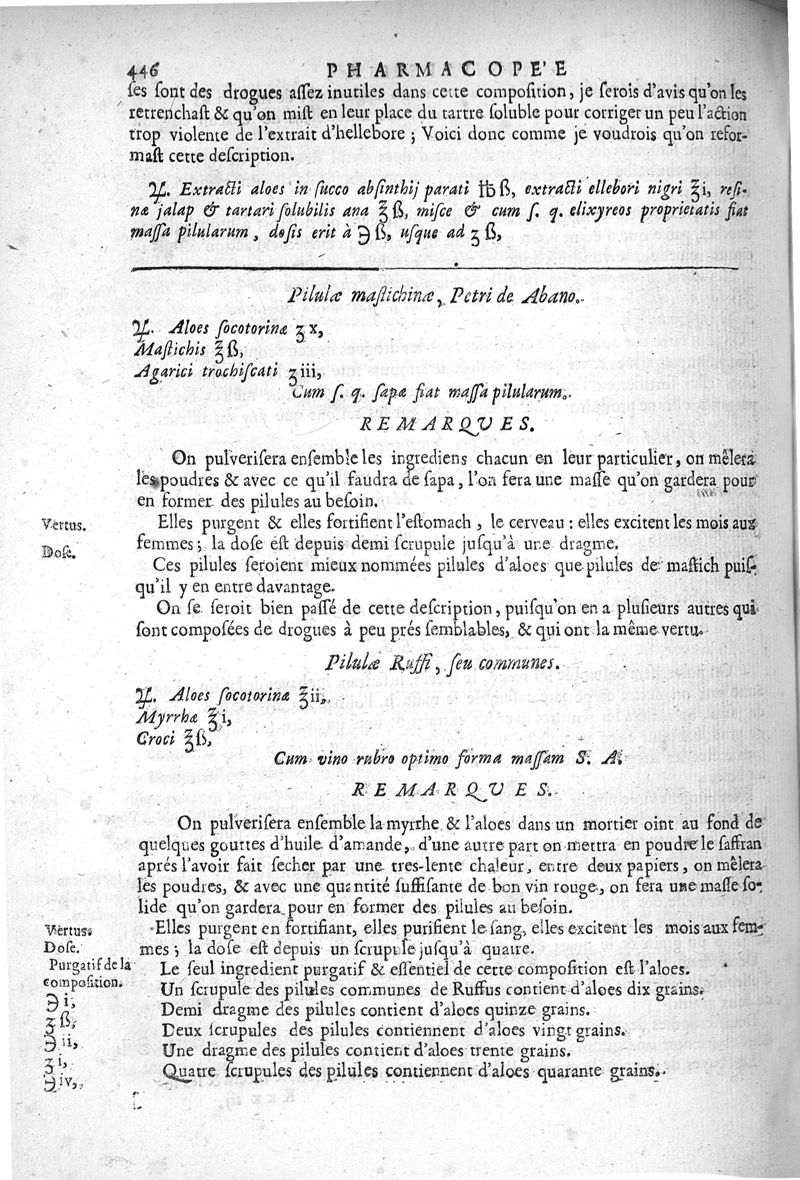 446 PHARMACOPE'E
ses sont des drogues assez inutiles dans cette composition, je serois d'avis qu'on les
retrenchast & qu'on mist en leur place du tartre soluble pour corriger un peu l'action
trop violente de l'extrait d'hellebore ; Voici donc comme je voudrois qu'on refor-
mast cette description.
♃. Extracti aloes in succo absinthij parati ℔ ß, extracti ellebori nigri ℥i, resi-
næ jalap & tartari solubilis ana ℥ ß, misce & cum s. q. elixyreos proprietatis fiat
massa pilularum, dosis erit à ℈ ß, usque ad ʒ ß,
Pilulæ mastichinæ, Petri de Abano.
♃. Aloes socotorinæ ʒ x,
Mastichis ℥ ß,
Agarici trochiscati ʒ iii,
Cum s. q. sapæ fiat massa pilularum.
REMARQVES.
On pulverisera ensemble les ingrediens chacun en leur particulier, on mêlera
les poudres & avec ce qu'il faudra de sapa, l'on fera une masse qu'on gardera pour
en former des pilules au besoin.
Vertus. Elles purgent & elles fortifient l'estomach, le cerveau : elles excitent les mois aux
Dose. femmes ; la dose est depuis demi scrupule jusqu'à une dragme.
Ces pilules seroient mieux nommées pilules d'aloes que pilules de mastich puis-
qu'il y en entre davantage.
On se seroit bien passé de cette description, puisqu'on en a plusieurs autres qui
sont composées de drogues à peu prés semblables, & qui ont la même vertu.
Pilulæ Ruffi, seu communes.
♃. Aloes socotorinæ ℥ii,
Myrrhæ ℥ i,
Croci ℥ß,
Cum vino rubro optimo forma massam S. A.
REMARQVES.
On pulverisera ensemble la myrrhe & l'aloes dans un mortier oint au fond de
quelques gouttes d'huile d'amande, d'une autre part on mettra en poudre le saffran
aprés l'avoir fait secher par une tres-lente chaleur, entre deux papiers, on mêlera
les poudres, & avec une quantité suffisante de bon vin rouge, on fera une masse so-
lide qu'on gardera pour en former des pilules au besoin.
Vertus. Elles purgent en fortifiant, elles purifient le sang, elles excitent les mois aux fem-
Dose. mes ; la dose est depuis un scrupule jusqu'à quatre.
Purgatif de la Le seul ingredient purgatif & essentiel de cette composition est l'aloes.
composition. Un scrupule des pilules communes de Ruffus contient d'aloes dix grains.
℈ i, Demi dragme des pilules contient d'aloes quinze grains.
ʒ ß, Deux scrupules des pilules contiennent d'aloes vingt grains.
℈ ii, Une dragme des pilules contient d'aloes trente grains.
ʒ i, Quatre scrupules des pilules contiennent d'aloes quarante grains.
℈ iv,